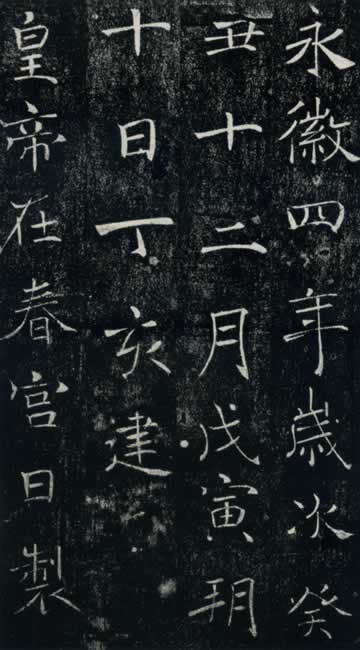 永徽四年歲次癸
丑十二月戊寅朔
十日丁亥建
皇帝在春宮日製